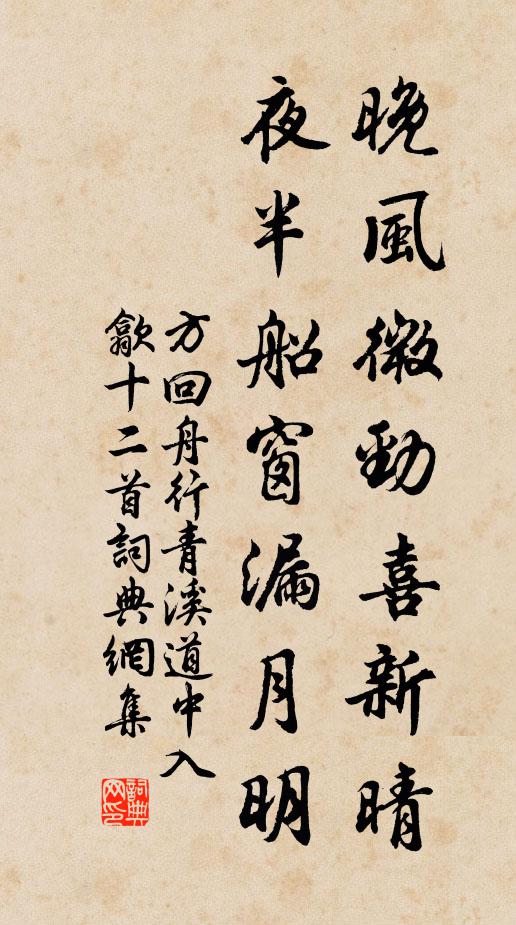 晚風微勁喜新晴
夜半船窗漏月明
方回舟行青溪道中入
歙十二首詞典網集
詞典
网印